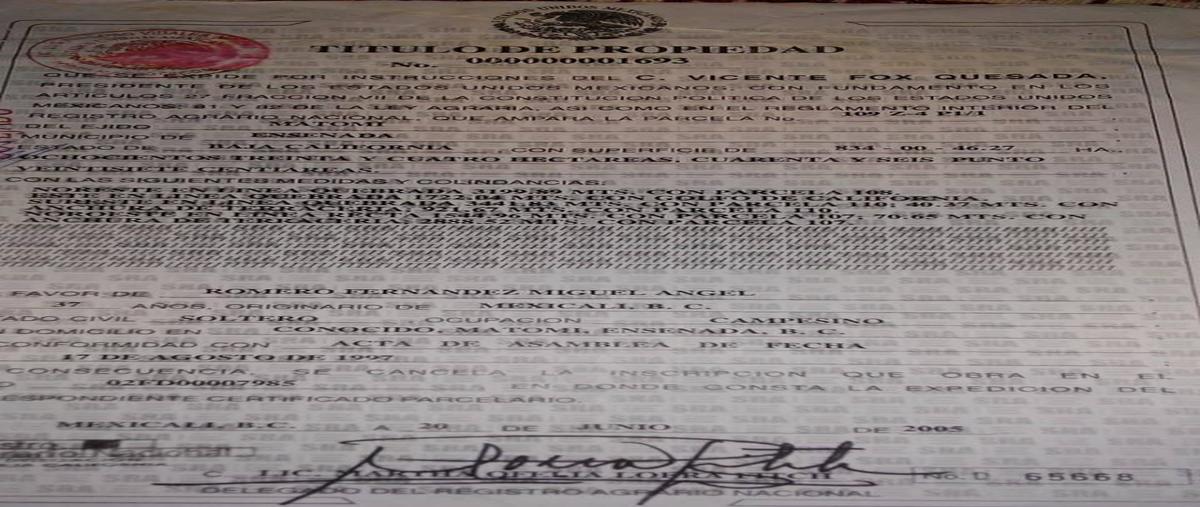 ESTADOS UNIDOS MEXICANOS
TITULO DE PROPIEDAD
No. 000000001693
QUE SE EXPIDE POR INSTRUCCIONES DEL C. VICENTE FOX QUESADA,
PRESIDENTE DE LOS ESTADOS UNIDOS MEXICANOS, CON FUNDAMENTO EN LOS
ARTICULOS 27 FRACCION DE LA CONSTITUCION POLITICA DE LOS ESTADOS UNIDOS
MEXICANOS; 81 Y 82 DE LA LEY AGRARIA, ASI COMO EN EL REGLAMENTO INTERIOR DEL
REGISTRO AGRARIO NACIONAL, QUE AMPARA LA PARCELA No. 109 Z-4 P1/1
DEL EJIDO MATOMI
MUNICIPIO DE ENSENADA
ADO DE BAJA CALIFORNIA CON SUPERFICIE DE 834 - 00 - 46.27 HA.,
OCHOCIENTOS TREINTA Y CUATRO HECTAREAS, CUARENTA Y SEIS PUNTO
VEINTISIETE CENTIAREAS.
CON LAS SIGUIENTES MEDIDAS Y COLINDANCIAS:
NORESTE EN LINEA QUEBRADA MTS. CON PARCELA 108.
MTS. CON GOLFO DE CALIFORNIA.
MTS. CON
PARCELA 110.
NOROESTE EN LINEA RECTA MTS. CON PARCELA 107, 70.65 MTS. CON
MTS. CON PARCELA 107.
FAVOR DE ROMERO FERNANDEZ MIGUEL ANGEL
37 AÑOS, ORIGINARIO DE MEXICALI, B. C.
ADO CIVIL SOLTERO OCUPACION CAMPESINO
DOMICILIO EN CONOCIDO, MATOMI, ENSENADA, B. C.
CONFORMIDAD CON ACTA DE ASAMBLEA DE FECHA
17 DE AGOSTO DE 1997
CONSECUENCIA, SE CANCELA LA INSCRIPCION QUE OBRA EN EL
O 02FD00007985 EN DONDE CONSTA LA EXPEDICION DEL
ESPONDIENTE CERTIFICADO PARCELARIO.
MEXICALI, B.C. A 20 DE JUNIO DE 2005
C. LIC.
No. D 65668
DELEGADO DEL REGISTRO AGRARIO NACIONAL